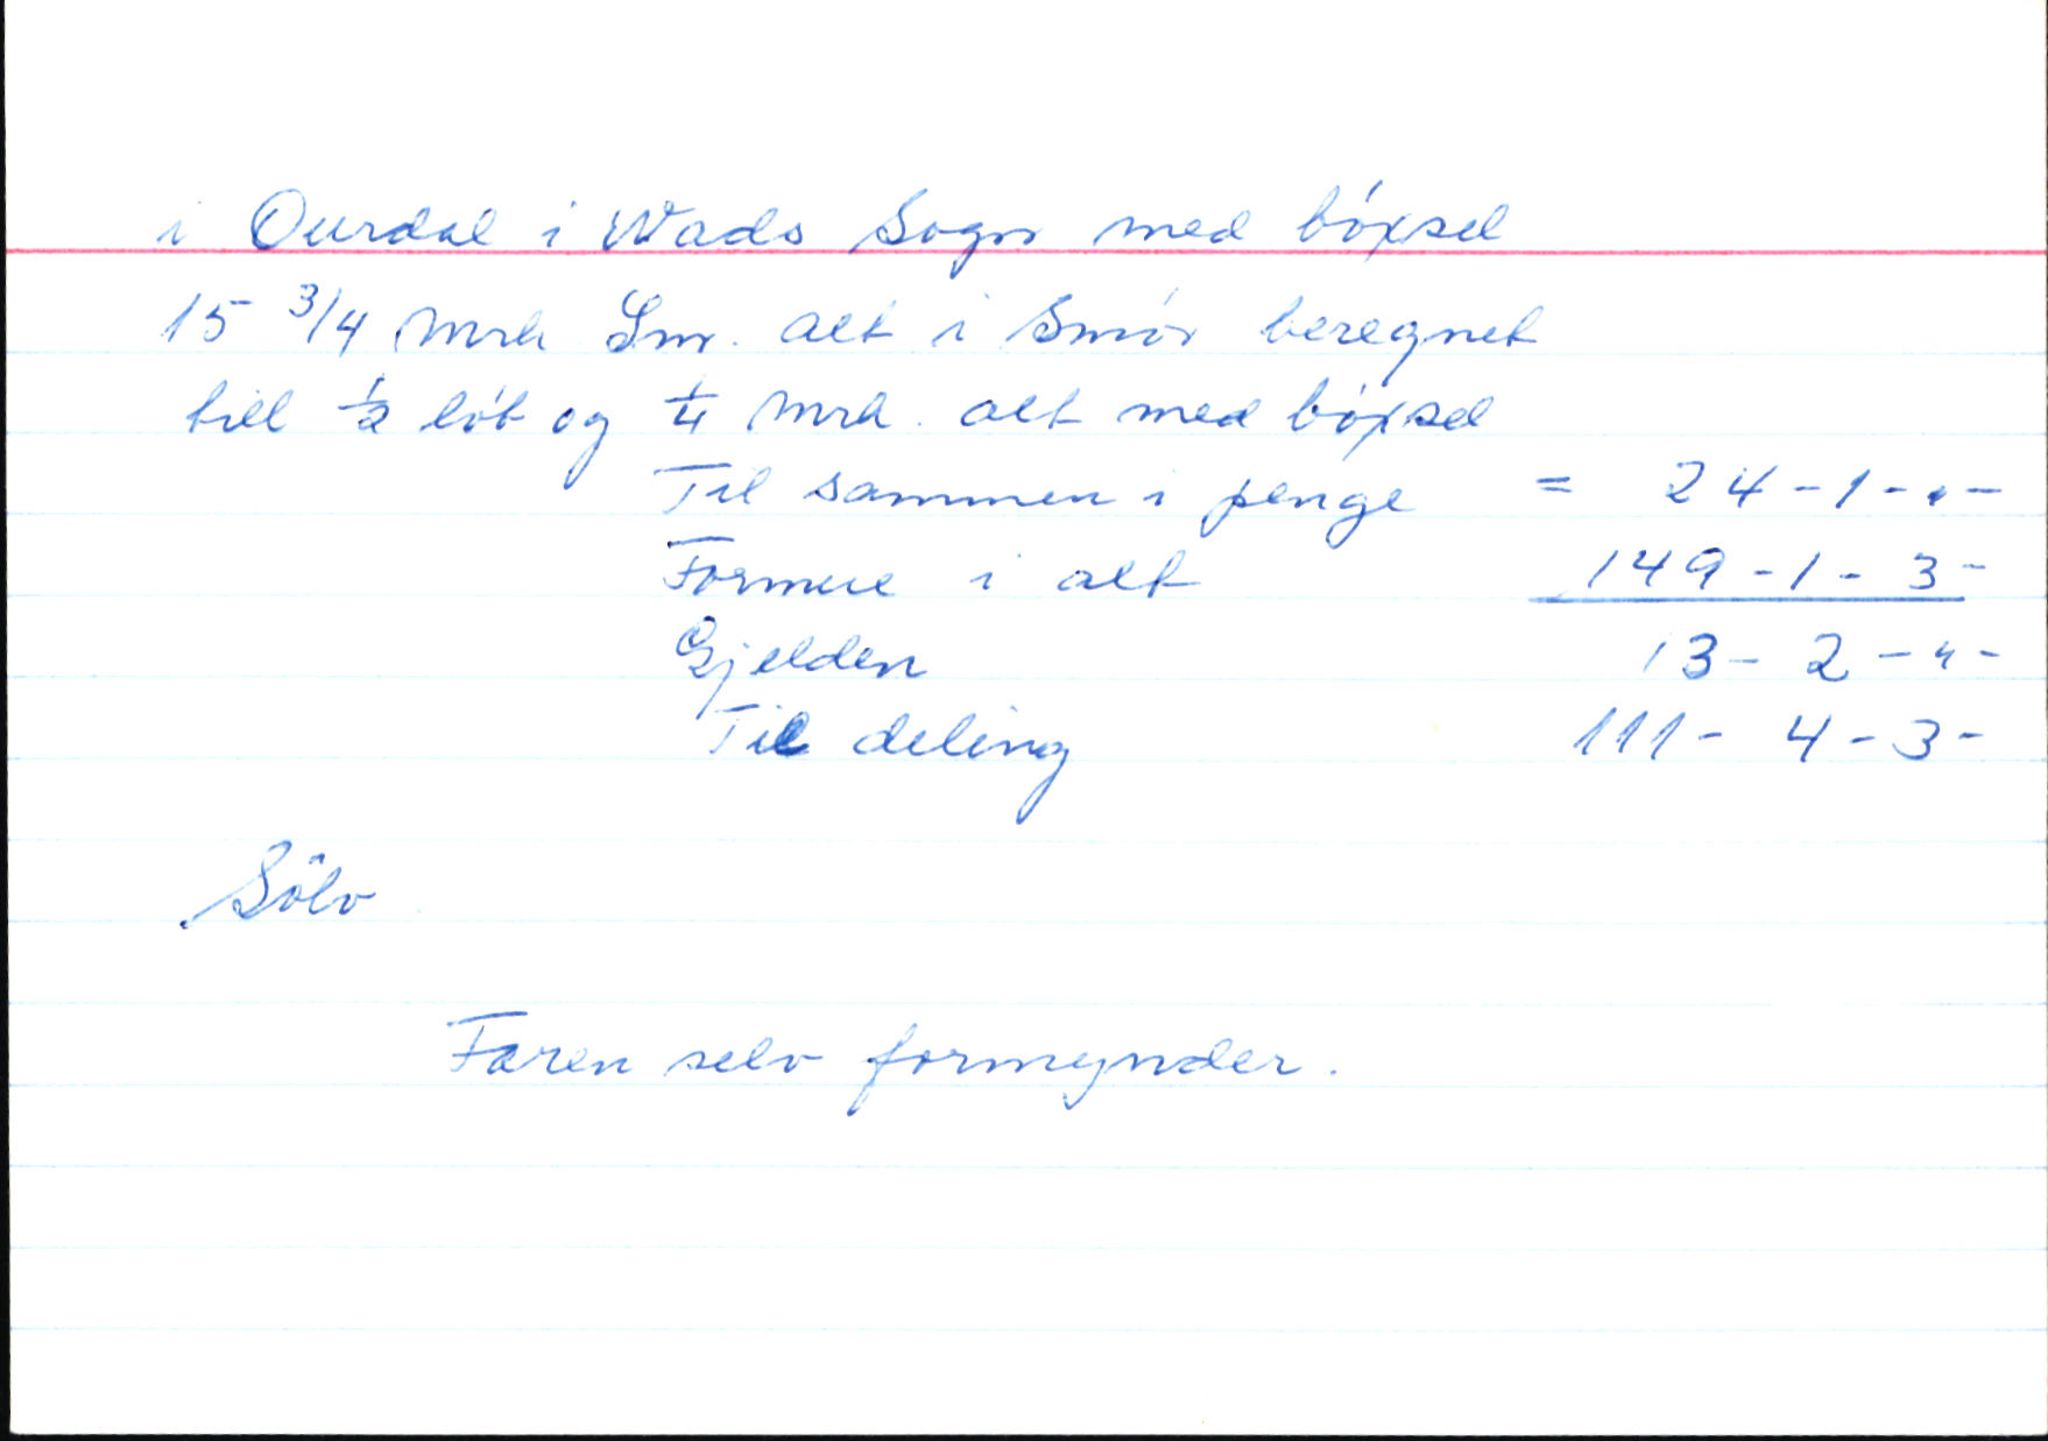 i Ourdal i Wads Sogn med bóxsel
15 3/4 Mrk Smr. alt i Smór beregnet
till 1/2 lób og 1/4 Mrk. alt med bóxsel
Til sammen i penge = 24-1-"-
Formue i alt 149-1-3-
Gjelden 13-2-"-
Til deling 111-4-3-
Sölv
Faren selv formynder.